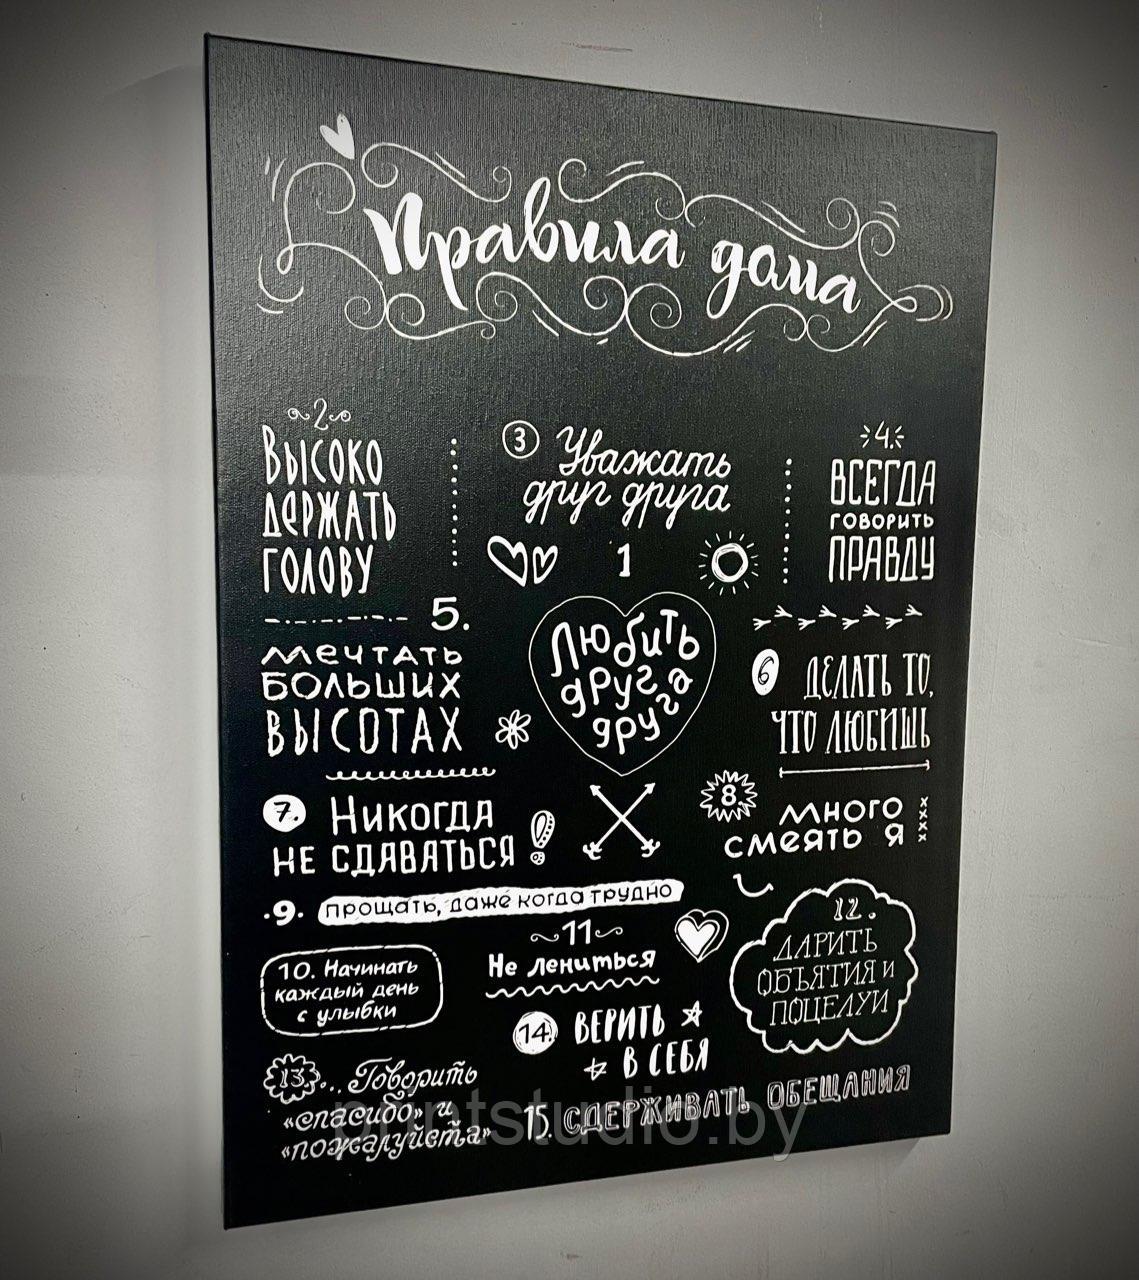 Правила дома
2
Высоко
держать
голову
3 Уважать
друг друга
4.
Всегда
говорить
правду
1
Любить
друг
друга
5.
мечтать
больших
высотах
6 делать то,
что любишь
7. Никогда
не сдаваться
8. много
смеять я
.9. прощать, даже когда трудно
10. Начинать
каждый день
с улыбки
~11~
Не лениться
12.
дарить
объятия и
поцелуи
13... Говорить
«спасибо» и
«пожалуйста»
14. верить
в себя
15. сдерживать обещания
printstudio.by